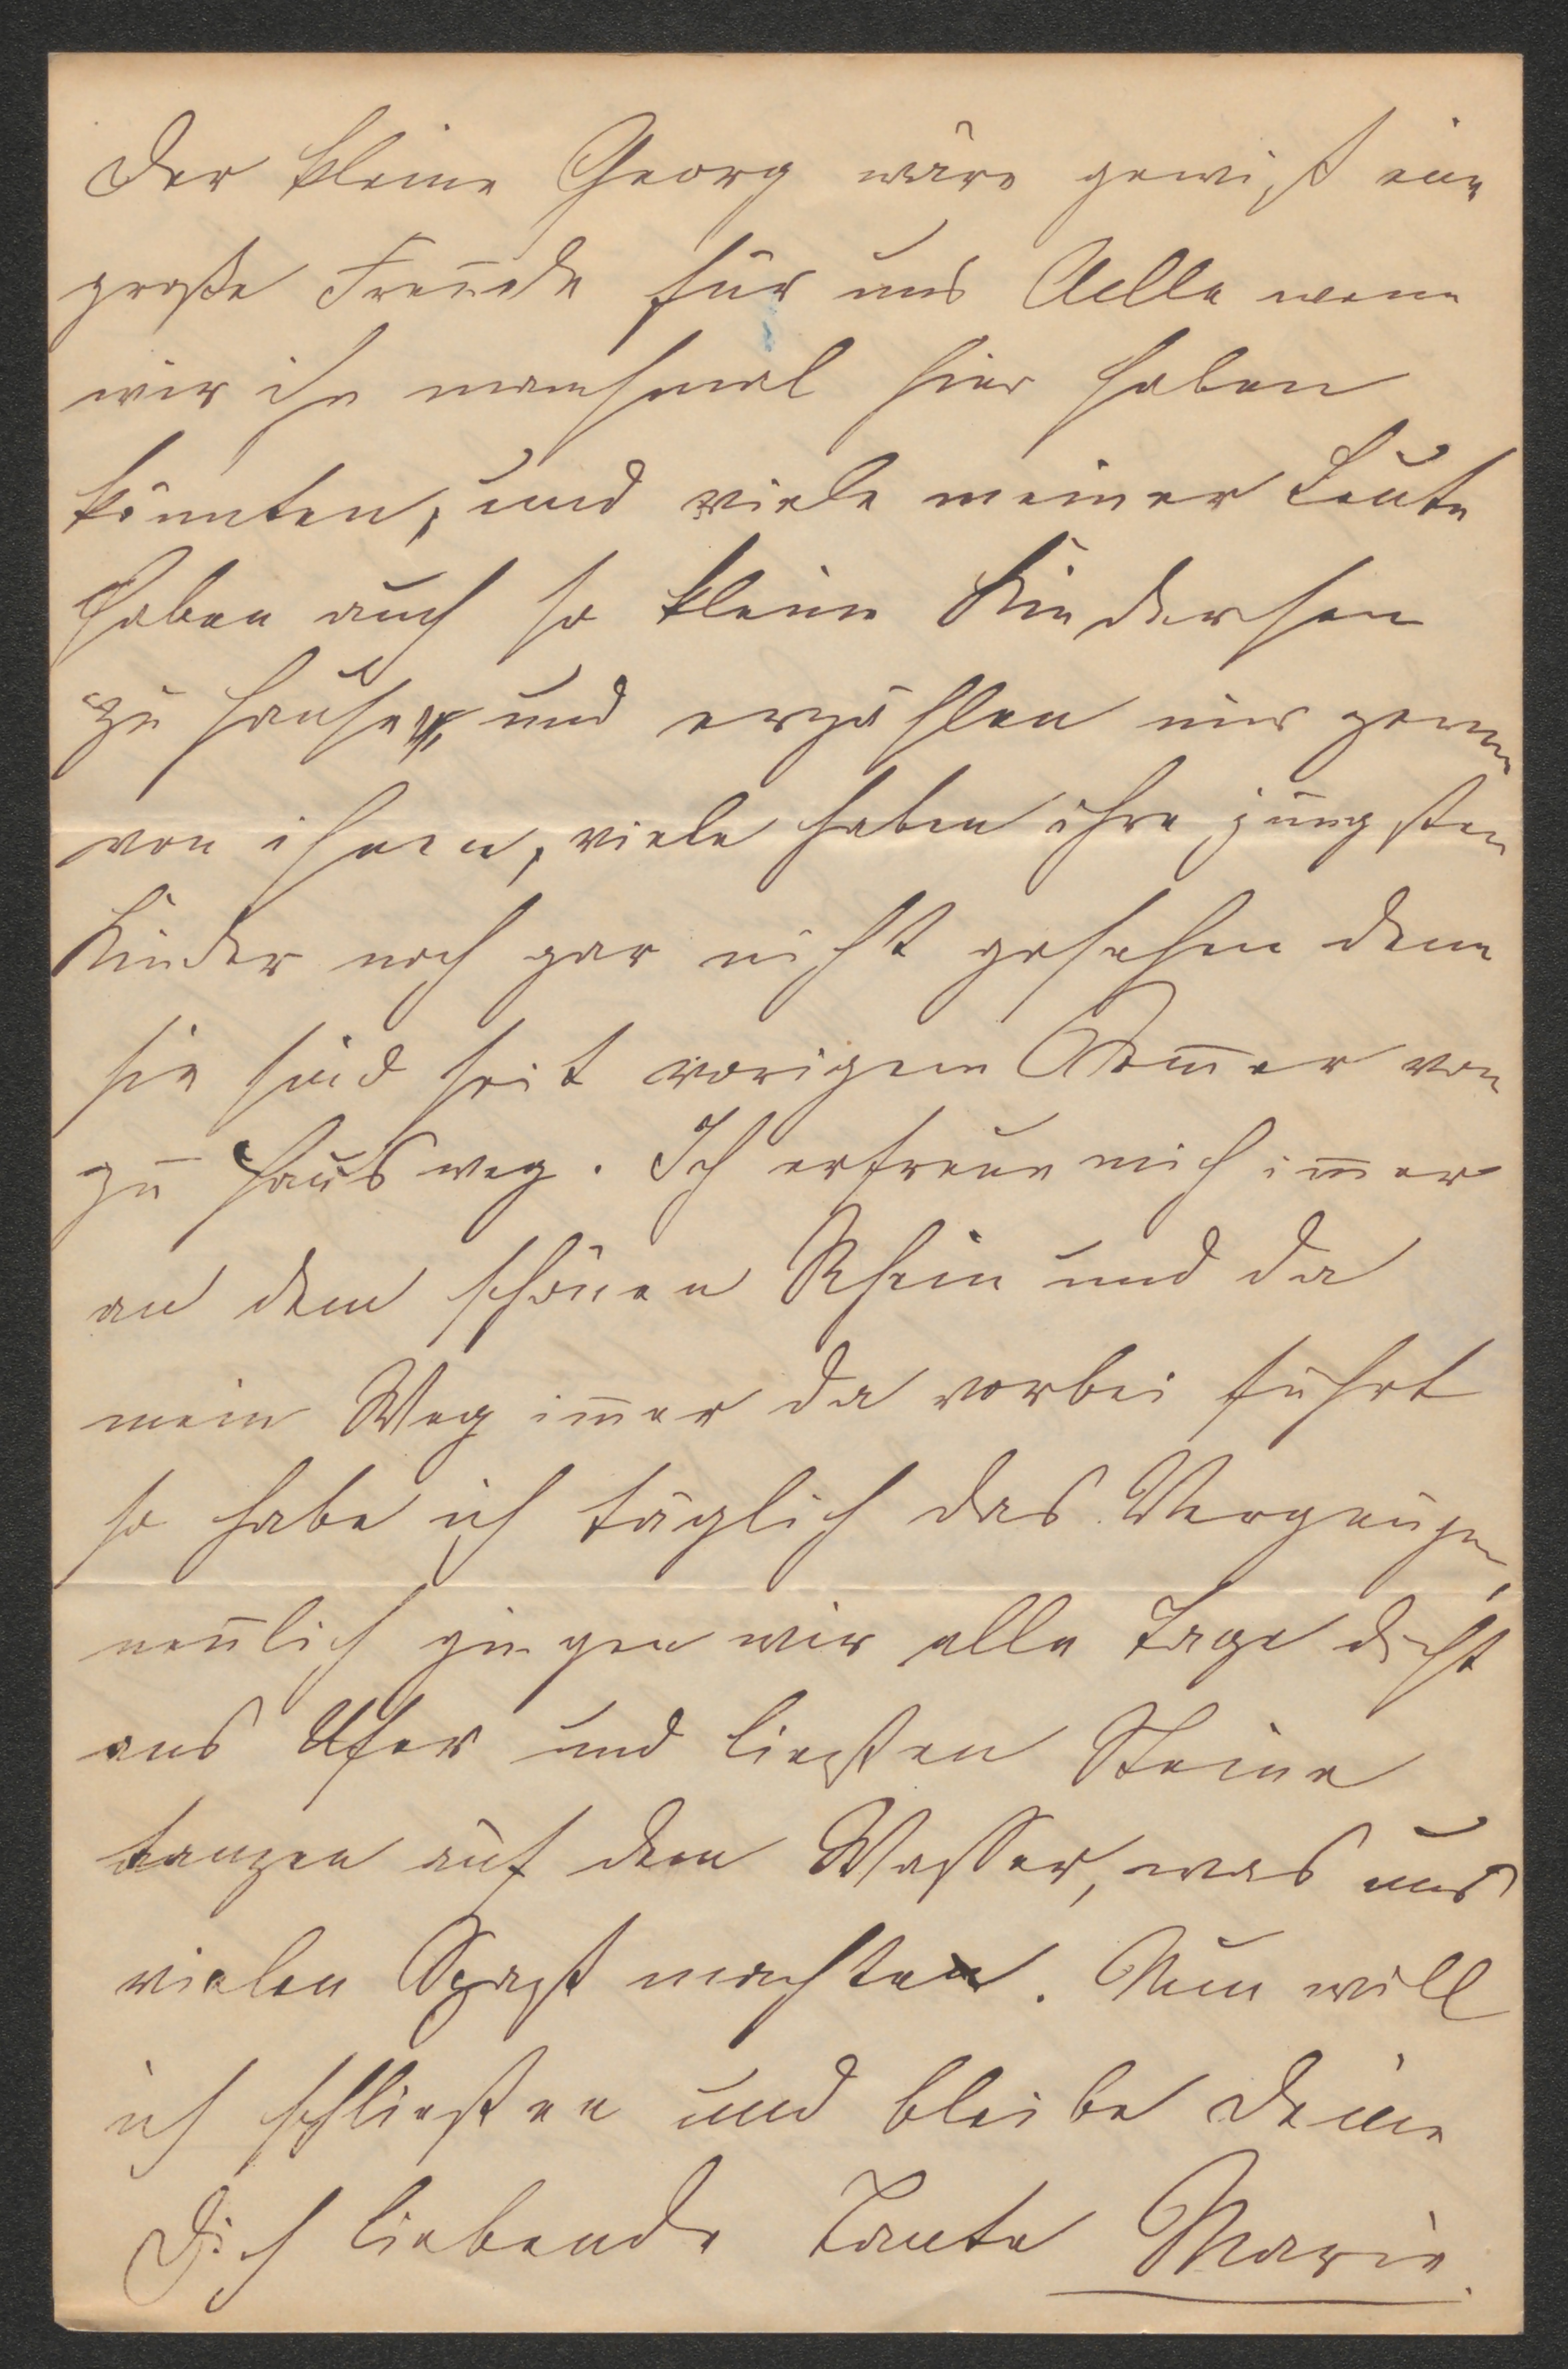 Der kleine Georg wäre gewiß eine
große Freude für uns Alle wenn
wir ihn manchmal hier haben
könnten, und viele meiner Leute
haben auch so kleine Kinderchen
zu Hause, und erzählen mir gerne
von ihnen, viele haben ihre jüngsten
Kinder noch gar nicht gesehen denn
sie sind seit vorigem Som̅er von
zu Haus weg. Ich erfreue mich im̅er
an dem schönen Rhein und da
mein Weg im̅er da vorbei führt
so habe ich täglich das Vergnügen,
neulich gingen wir alle Tage dicht
ans Ufer und ließen Steine
tanzen auf dem Wasser, was uns
vielen Spaß machte. Nun will
ich schließen und bleibe Deine
Dich liebende Tante Marie.